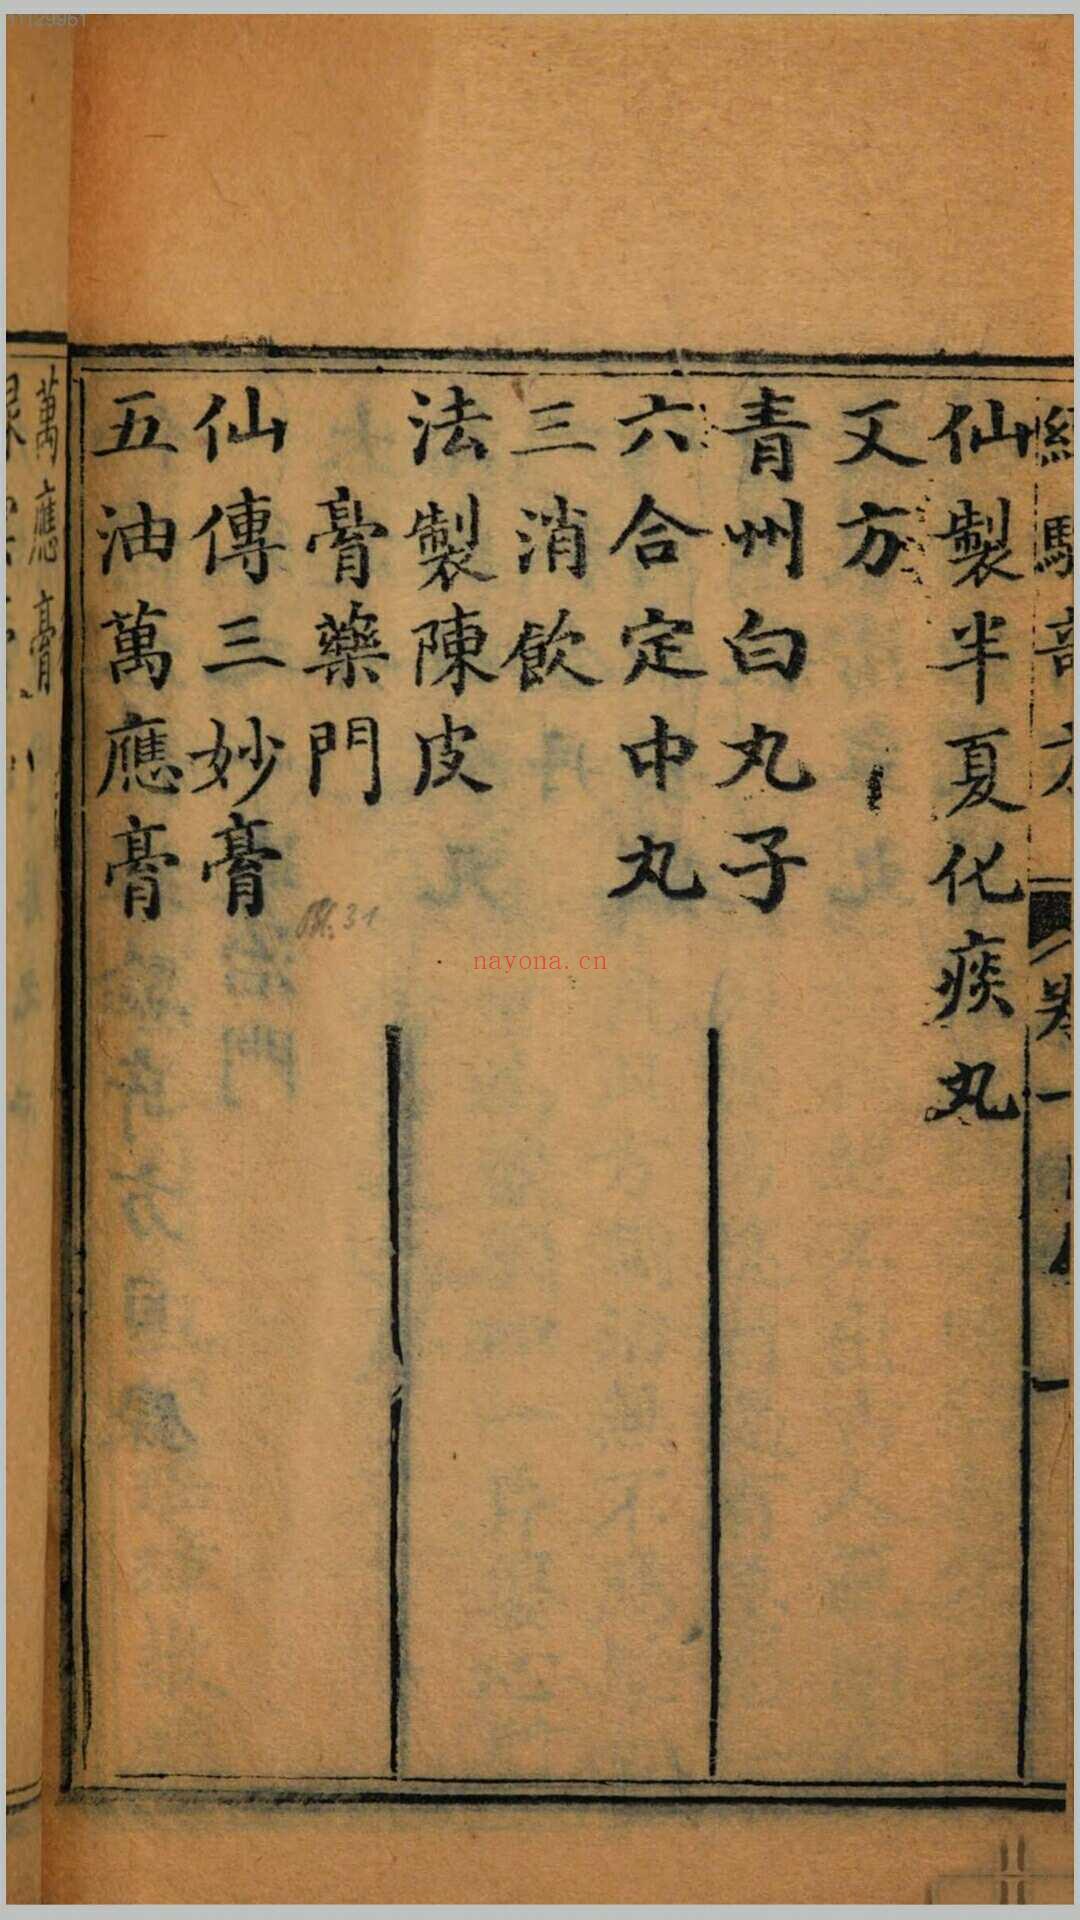 仙製半夏化痰丸
又方
青州白丸子
六合定中丸
三消飲
法製陳皮
膏藥門
仙傳三妙膏
五油萬應膏
萬應膏
nayona.cn